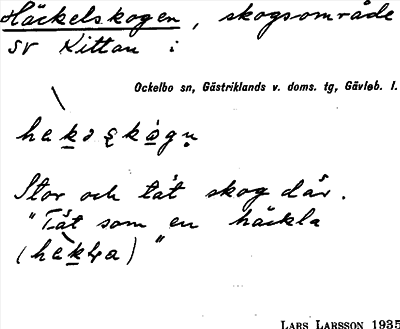 Häckelskogen, skogsområde
SV Kittan i
Ockelbo sn, Gästriklands v. doms. tg, Gävleb. l.
Stor och tät skog där.
"Tät som en häckla
LARS LARSSON 1935